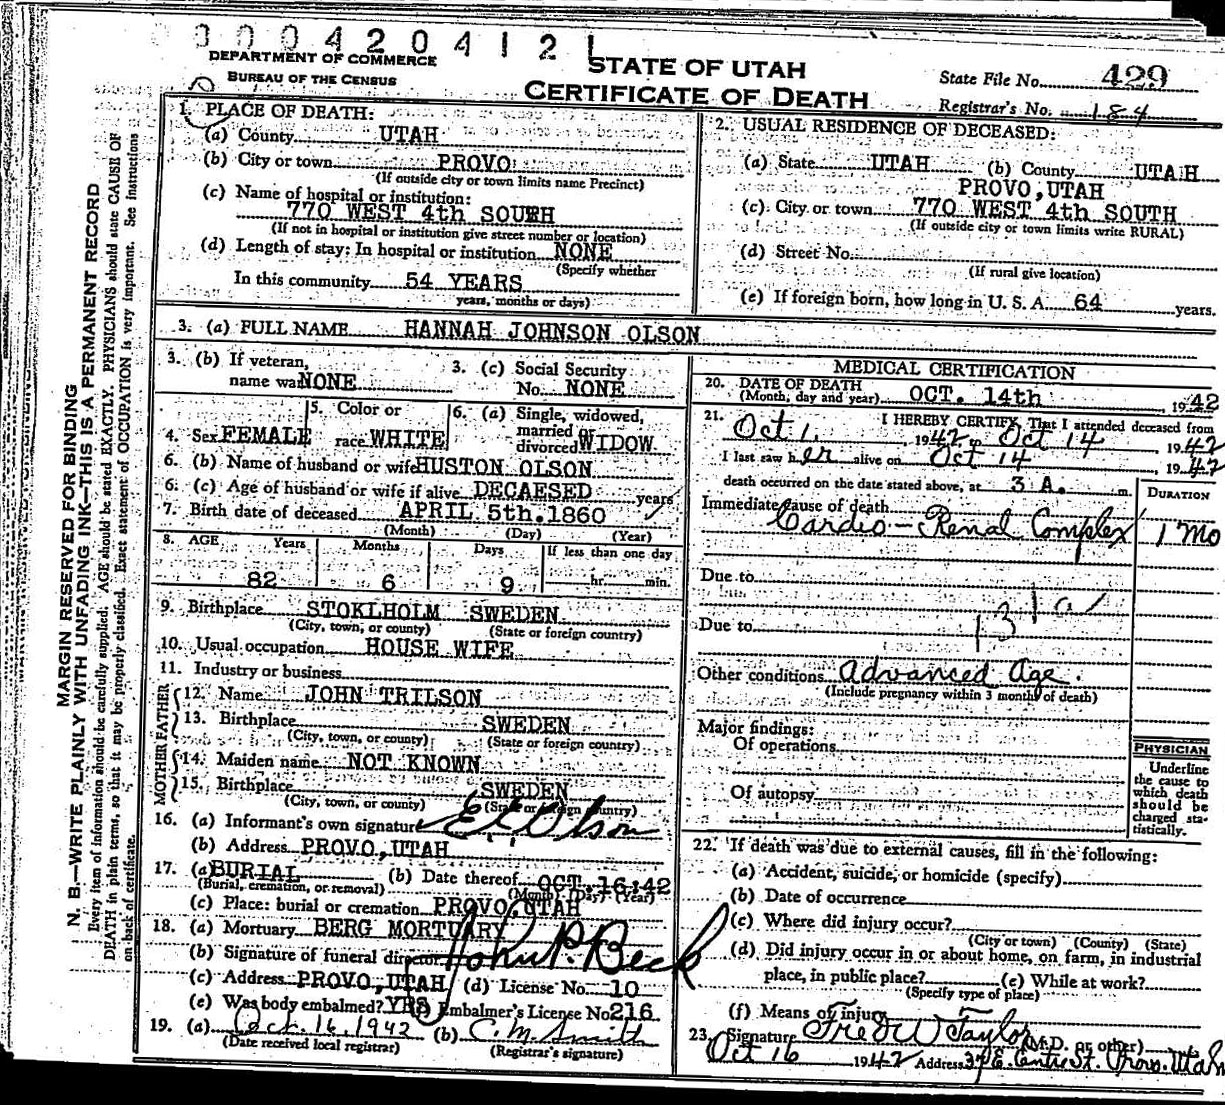 000420412
DEPARTMENT OF COMMERCE
BUREAU OF THE CENSUS
STATE OF UTAH
CERTIFICATE OF DEATH
State File No. 429
Registrar's No. 184
MARGIN RESERVED FOR BINDING
N. B.—WRITE PLAINLY WITH UNFADING INK—THIS IS A PERMANENT RECORD
Every item of information should be carefully supplied. AGE should be stated EXACTLY. PHYSICIANS should state CAUSE OF
DEATH in plain terms, so that it may be properly classified. Exact statement of OCCUPATION is very important. See instructions
on back of certificate.
1. PLACE OF DEATH:
(a) County UTAH
(b) City or town PROVO
(If outside city or town limits name Precinct)
(c) Name of hospital or institution:
770 WEST 4th SOUTH
(If not in hospital or institution give street number or location)
(d) Length of stay: In hospital or institution NONE
(Specify whether
In this community 54 YEARS
years, months or days)
2. USUAL RESIDENCE OF DECEASED:
(a) State UTAH (b) County UTAH
PROVO, UTAH
(c) City or town 770 WEST 4th SOUTH
(If outside city or town limits write RURAL)
(d) Street No.
(If rural give location)
(e) If foreign born, how long in U. S. A. 64 years.
3. (a) FULL NAME HANNAH JOHNSON OLSON
3. (b) If veteran,
name war NONE
3. (c) Social Security
No. NONE
4. Sex FEMALE
5. Color or
race WHITE
6. (a) Single, widowed,
married or
divorced WIDOW
6. (b) Name of husband or wife HUSTON OLSON
6. (c) Age of husband or wife if alive DECAESED years
7. Birth date of deceased APRIL 5th. 1860
(Month) (Day) (Year)
8. AGE Years Months Days If less than one day
82 6 9 hr. min.
9. Birthplace STOKLHOLM SWEDEN
(City, town, or county) (State or foreign country)
10. Usual occupation HOUSE WIFE
11. Industry or business
FATHER
12. Name JOHN TRILSON
13. Birthplace SWEDEN
(City, town, or county) (State or foreign country)
MOTHER
14. Maiden name NOT KNOWN
15. Birthplace SWEDEN
(City, town, or county) (State or foreign country)
16. (a) Informant's own signature E E Olson
(b) Address PROVO, UTAH
17. (a) BURIAL (b) Date thereof OCT. 16:42
(Burial, cremation, or removal) (Month) (Day) (Year)
(c) Place: burial or cremation PROVO, UTAH
18. (a) Mortuary BERG MORTUARY
(b) Signature of funeral director John P. Beck
(c) Address PROVO, UTAH (d) License No. 10
(e) Was body embalmed? YES Embalmer's License No 216
19. (a) Oct. 16, 1942 (b) C. M. Smith
(Date received local registrar) (Registrar's signature)
MEDICAL CERTIFICATION
20. DATE OF DEATH
(Month, day and year) OCT. 14th, 1942
21. I HEREBY CERTIFY, That I attended deceased from
Oct 1, 1942 to Oct 14 1942
I last saw her alive on Oct 14, 1942
death occurred on the date stated above, at 3 A. m.
DURATION
Immediate cause of death
Cardio-Renal Complex 1 Mo
Due to
131a
Due to
Other conditions Advanced Age.
(Include pregnancy within 3 months of death)
Major findings:
Of operations
Of autopsy
PHYSICIAN
Underline
the cause to
which death
should be
charged sta-
tistically.
22. If death was due to external causes, fill in the following:
(a) Accident, suicide, or homicide (specify)
(b) Date of occurrence
(c) Where did injury occur?
(City or town) (County) (State)
(d) Did injury occur in or about home, on farm, in industrial
place, in public place? (e) While at work?
(Specify type of place)
(f) Means of injury
23. Signature Fred W Taylor (M.D. or other)
Oct 16 1942 Address 37 E. Centre St. Provo. Utah